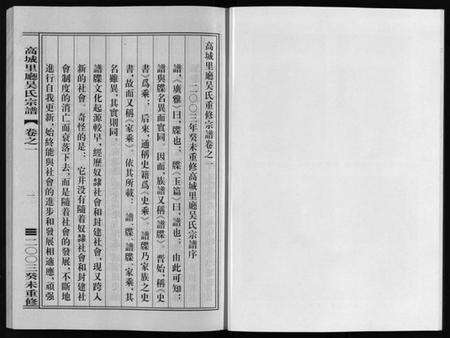 高城里廳吳氏重修宗譜卷之一
二〇〇三年癸未重修高城里廳吳氏宗譜序
譜，《廣雅》曰，牒也，牒《玉篇》曰，譜也，由此可知，
譜與牒名異而實同，因而，族譜又稱《譜牒》，晋始，稱《史
書》爲乘，后來，通稱史籍爲《史乘》，譜牒乃家族之史
書，故而又稱《家乘》，依其所載，譜、牒、譜牒、家乘，其
名雖異，其實則同。
譜牒文化起源較早，經歷奴隸社會和封建社會，現又跨入
新的社會，奇怪的是，它并没有隨着奴隸社會和封建社
會制度的消亡而衰落下去，而是隨着社會的發展，不斷地
進行自我更新，始終能與社會的進步和發展相適應，頑强
高城里廳吳氏宗譜 卷之一
一
二〇〇三癸未重修